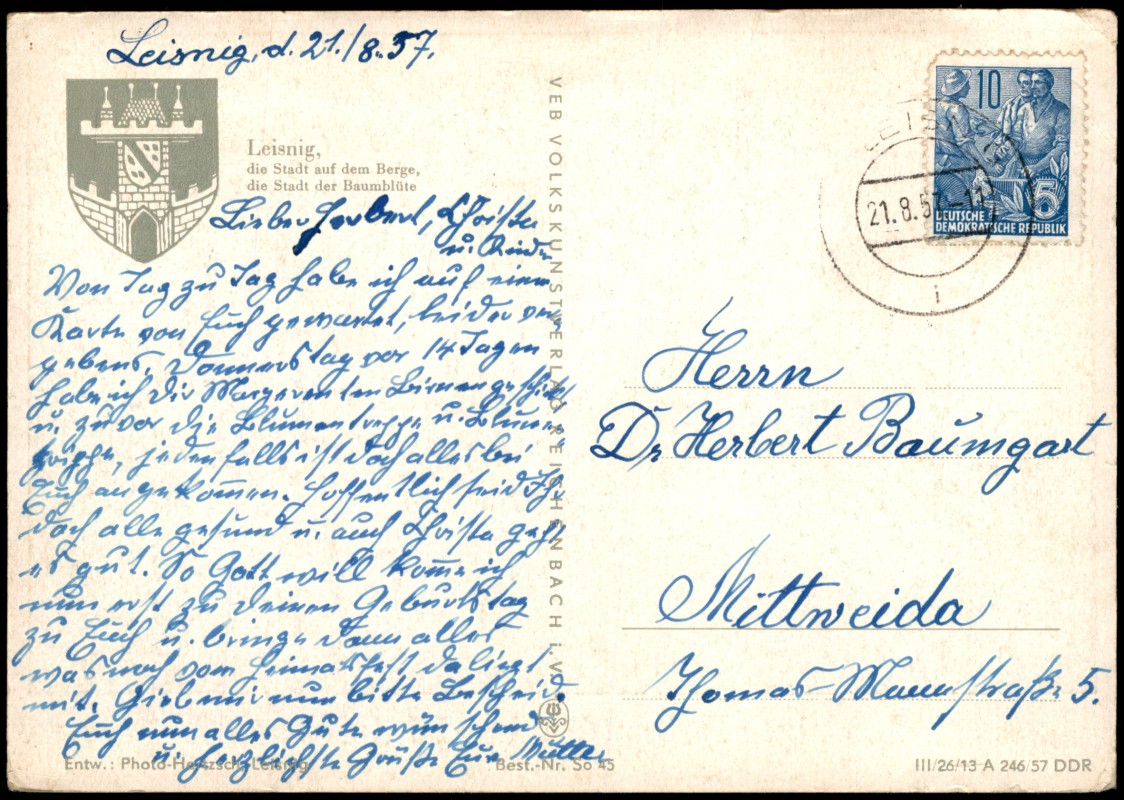 Leisnig, d. 21./8.57.
Leisnig,
die Stadt auf dem Berge,
die Stadt der Baumblüte
Lieber Herbert, Christa
u. Kinder
Von Tag zu Tag habe ich auf eine
Karte von Euch gewartet, leider ver-
gebens. Donnerstag vor 14 Tagen
habe ich die Birnen geschickt
u. zuvor die Blumentreppe u. Blumen
krippe, jedenfalls ist doch alles bei
Euch angekommen. Hoffentlich seid Ihr
doch alle gesund u. auch Christa geht
es gut. So Gott will komme ich
nun erst zu Deinem Geburtstag
zu Euch u. bringe dann alles
was noch vom Heimatfest daliegt
mit. Gieb mir nun bitte Bescheid.
Euch nun alles Gute wünschend
u. herzlichste Grüße Eure Mutter
Entw.: Photo-Leisnig
Best.-Nr. So 45
VEB VOLKSKUNSTVERLAG REICHENBACH I. V.
10
5
DEUTSCHE
DEMOKRATISCHE REPUBLIK
LEISNIG
21.8.57
i
Herrn
Dr Herbert Baumgart
Mittweida
Thomas-Mannstraße 5.
III/26/13 A 246/57 DDR